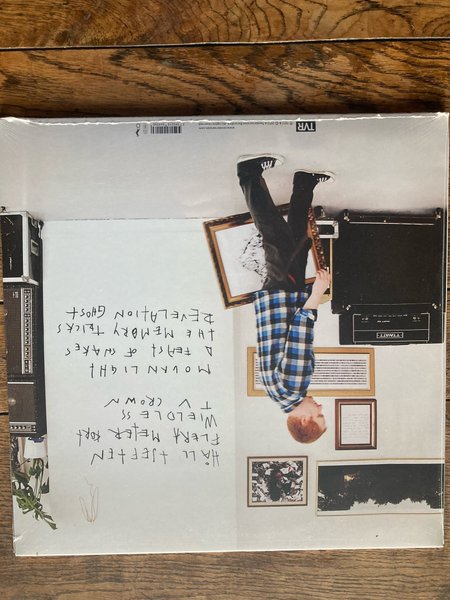 HÅLL TJEFTEN
METER KORT
WIELDLESS
TV CROWN
MOURNLIGHT
A FEAST OF SNAKES
THE MEMORY TRICKS
REVELATION GHOST
TVR